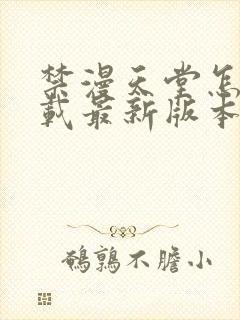 禁漫天堂怎
载最新版本
鹌鹑不膽小